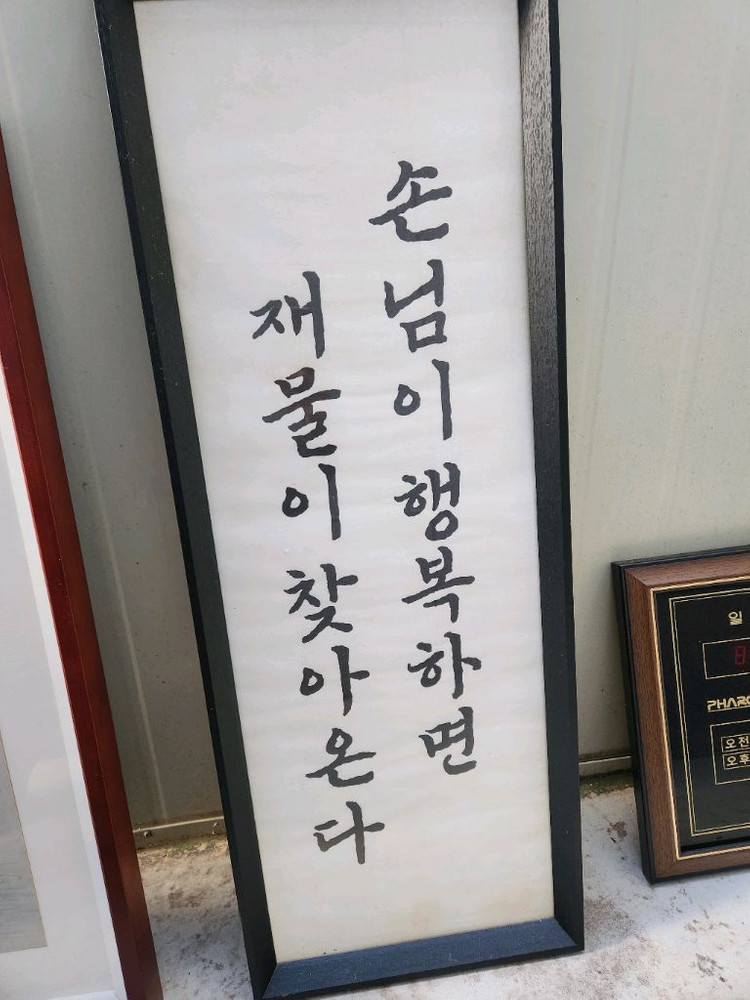 손님이행복하면
재물이찾아온다
일
오전
오후